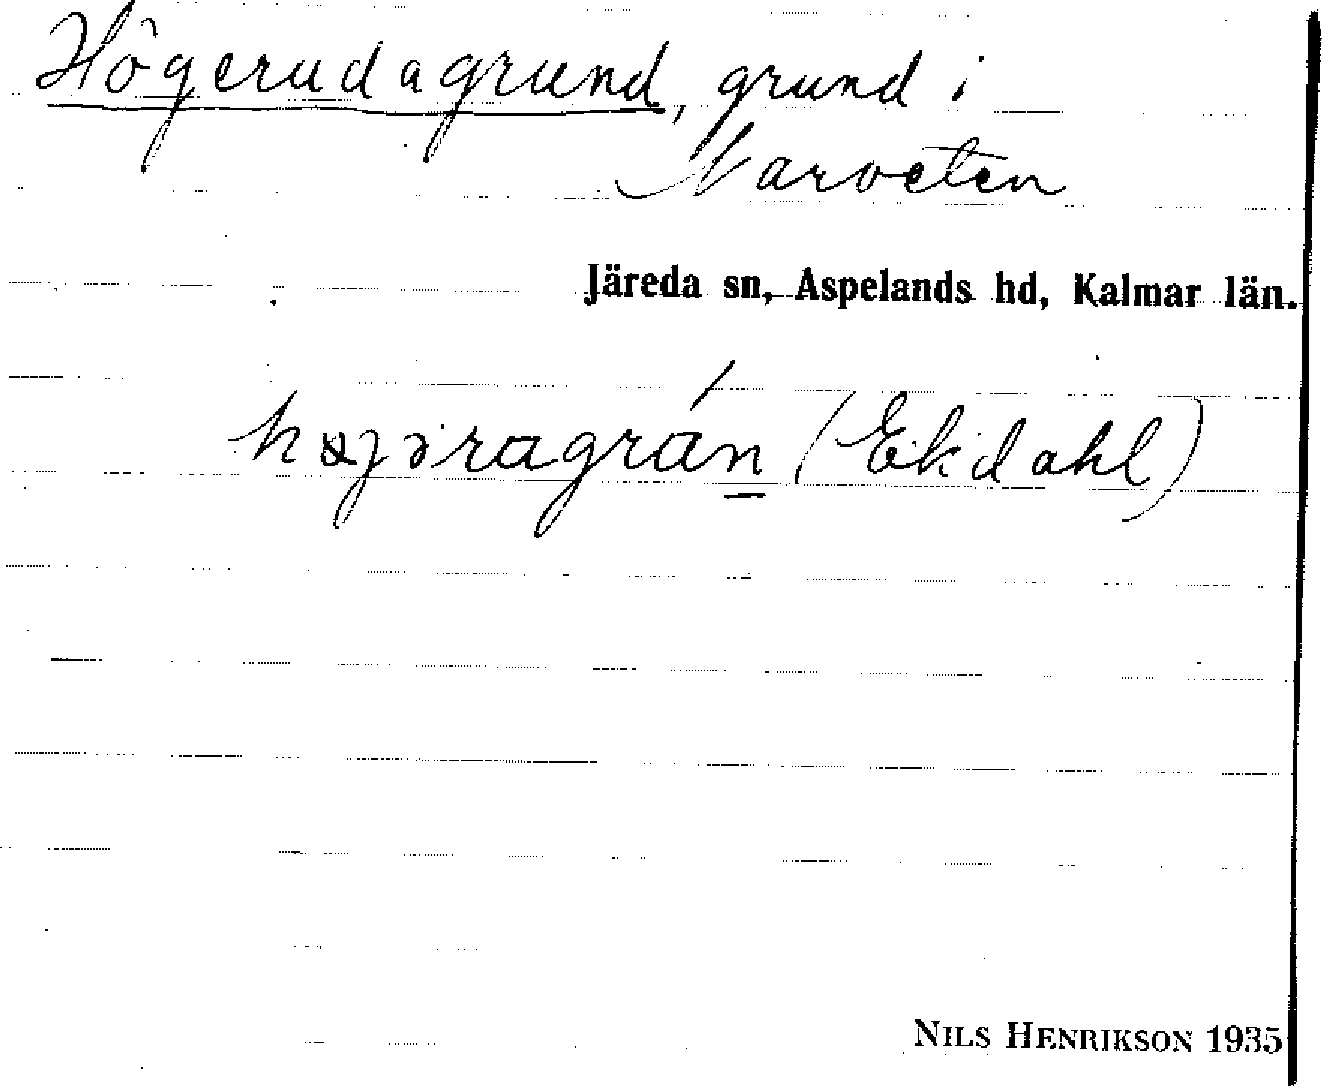 Högerudagrund, grund i
Narveten
Järeda sn, Aspelands hd, Kalmar län.
(Ekdahl)
NILS HENRIKSON 1935